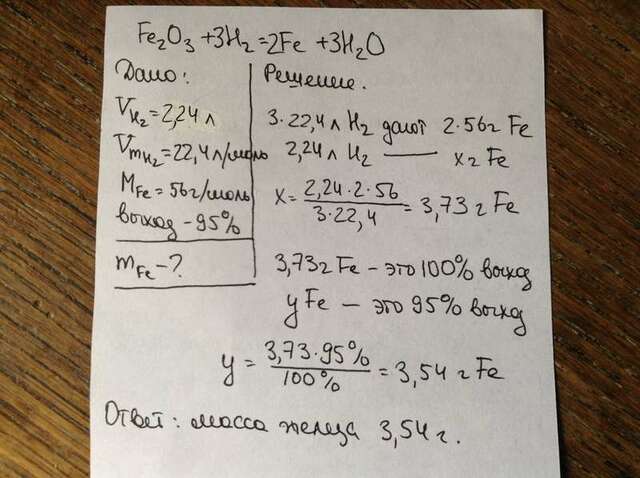 Fe₂O₃ +3H₂ =2Fe +3H₂O
Дано:
V_H₂ = 2,24 л
V_mH₂ = 22,4 л/моль
M_Fe = 56 г/моль
выход - 95%
m_Fe - ?
Решение.
3·22,4 л H₂ дают 2·56г Fe
2,24 л H₂ —— x г Fe
x = 2,24·2·56 / 3·22,4 = 3,73 г Fe
3,73г Fe – это 100% выход
y Fe – это 95% выход
y = 3,73·95% / 100% = 3,54 г Fe
Ответ: масса железа 3,54 г.